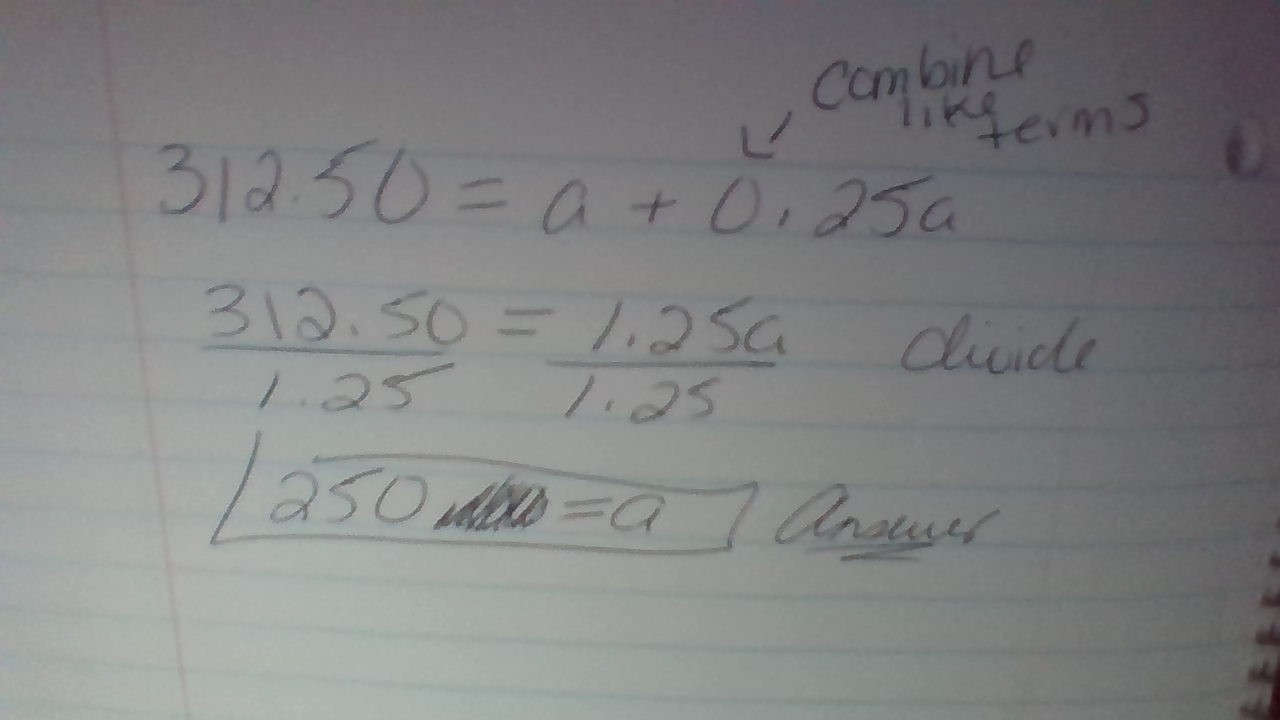 combine
like
terms
312.50 = a + 0.25a
312.50 = 1.25a divide
1.25 1.25
250 = a Answer